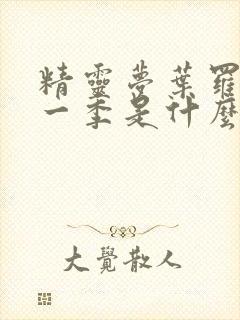 精靈夢葉羅
一季是什麼
大覺散人